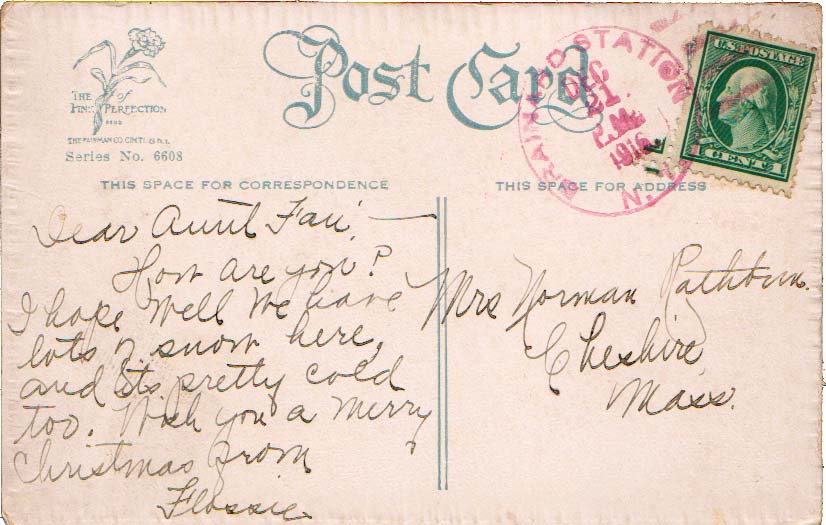 THE of
PINK PERFECTION
THE FAIRMAN CO. CINTI. & N.Y.
Series No. 6608
Post Card
STATION
DEC
21
P.M.
1916
N.Y.
U.S. POSTAGE
1 CENT 1
THIS SPACE FOR CORRESPONDENCE
THIS SPACE FOR ADDRESS
Dear Aunt Fan,
How are you?
I hope well We have
lots of snow here,
and its pretty cold
too. Wish you a Merry
Christmas from
Flossie
Mrs Norman Rathbun.
Cheshire
Mass.